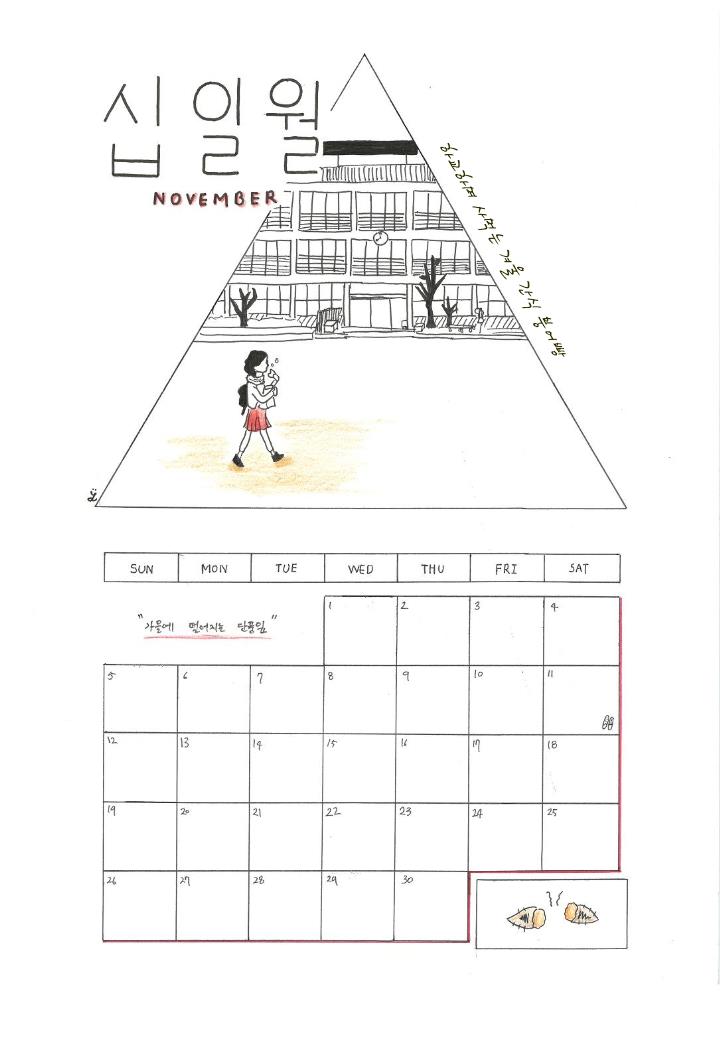 십일월
NOVEMBER
하교하며 사먹는 겨울 간식 붕어빵
SUN MON TUE WED THU FRI SAT
"가을에 떨어지는 단풍잎"
1 2 3 4
5 6 7 8 9 10 11
12 13 14 15 16 17 18
19 20 21 22 23 24 25
26 27 28 29 30